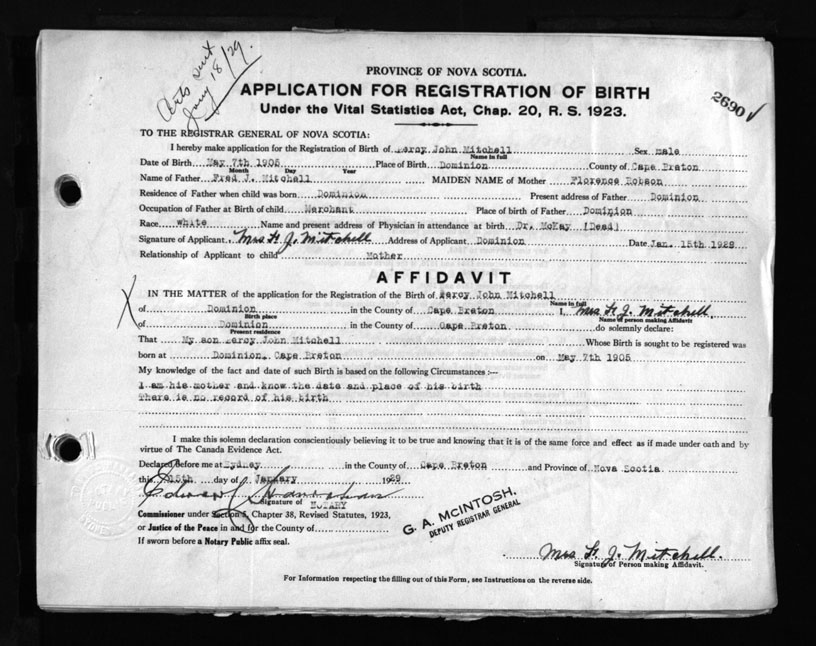 Certs sent
Jany 18/29.
PROVINCE OF NOVA SCOTIA.
APPLICATION FOR REGISTRATION OF BIRTH
Under the Vital Statistics Act, Chap. 20, R. S. 1923.
2690 ✓
TO THE REGISTRAR GENERAL OF NOVA SCOTIA:
I hereby make application for the Registration of Birth of Percy John Mitchell Sex male
Name in full
Date of Birth May 7th 1905 Place of Birth Dominion County of Cape Breton
Month Day Year
Name of Father Fred J. Mitchell MAIDEN NAME of Mother Florence Robson
Residence of Father when child was born Dominion Present address of Father Dominion
Occupation of Father at Birth of child Merchant Place of birth of Father Dominion
Race white Name and present address of Physician in attendance at birth Dr. McKay (Dead)
Signature of Applicant Mrs F. J. Mitchell Address of Applicant Dominion Date Jan. 15th 1929
Relationship of Applicant to child Mother
AFFIDAVIT
X IN THE MATTER of the application for the Registration of the Birth of Percy John Mitchell
Name in full
of Dominion in the County of Cape Breton I, Mrs F. J. Mitchell.
Birth place Name of person making Affidavit
of Dominion in the County of Cape Breton do solemnly declare:
Present residence
That My son Percy John Mitchell Whose Birth is sought to be registered was
born at Dominion, Cape Breton on May 7th 1905
My knowledge of the fact and date of such Birth is based on the following Circumstances :—
I am his mother and know the date and place of his birth
There is no record of his birth
I make this solemn declaration conscientiously believing it to be true and knowing that it is of the same force and effect as if made under oath and by
virtue of The Canada Evidence Act.
Declared before me at Sydney in the County of Cape Breton and Province of Nova Scotia
this 15th day of January 1929
Signature of NOTARY
Commissioner under Section 5, Chapter 38, Revised Statutes, 1923,
or Justice of the Peace in and for the County of
If sworn before a Notary Public affix seal.
G. A. McINTOSH,
DEPUTY REGISTRAR GENERAL
Mrs F. J. Mitchell.
Signature of Person making Affidavit.
For Information respecting the filling out of this Form, see Instructions on the reverse side.